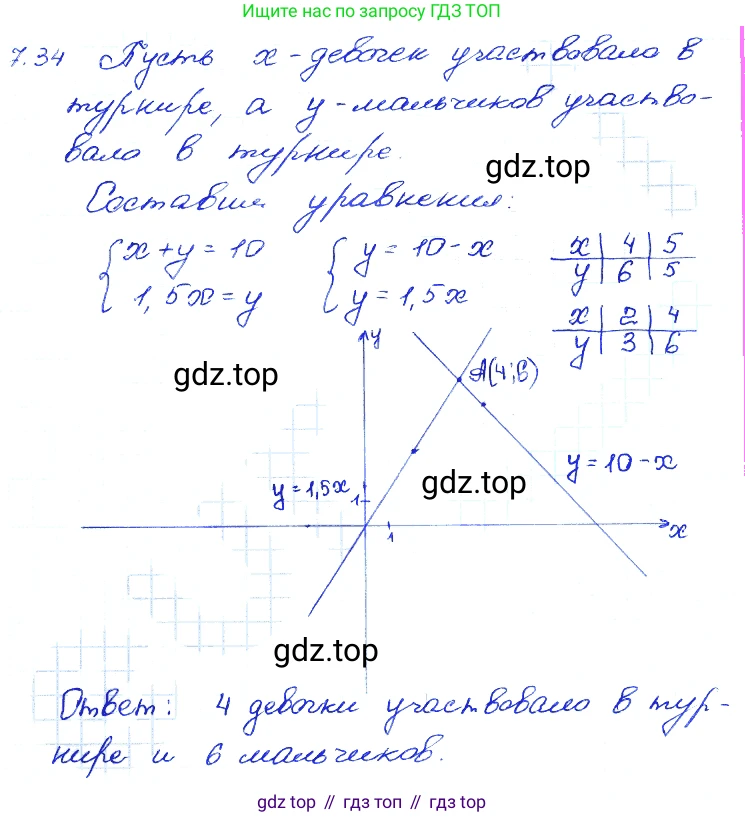 Ищите нас по запросу ГДЗ ТОП
7.34 Пусть x - девочек участвовало в
турнире, а y - мальчиков участво-
вало в турнире.
gdz.top
Составим уравнения:
{x + y = 10
1,5x = y
{y = 10 - x
y = 1,5x
x | 4 | 5
y | 6 | 5
x | 2 | 4
y | 3 | 6
y
A(4;6)
gdz.top
y = 10 - x
y = 1,5x
1
gdz.top
x
1
gdz.top
Ответ: 4 девочки участвовало в тур-
нире и 6 мальчиков.
gdz top // гдз топ // gdz.top // гдз топ